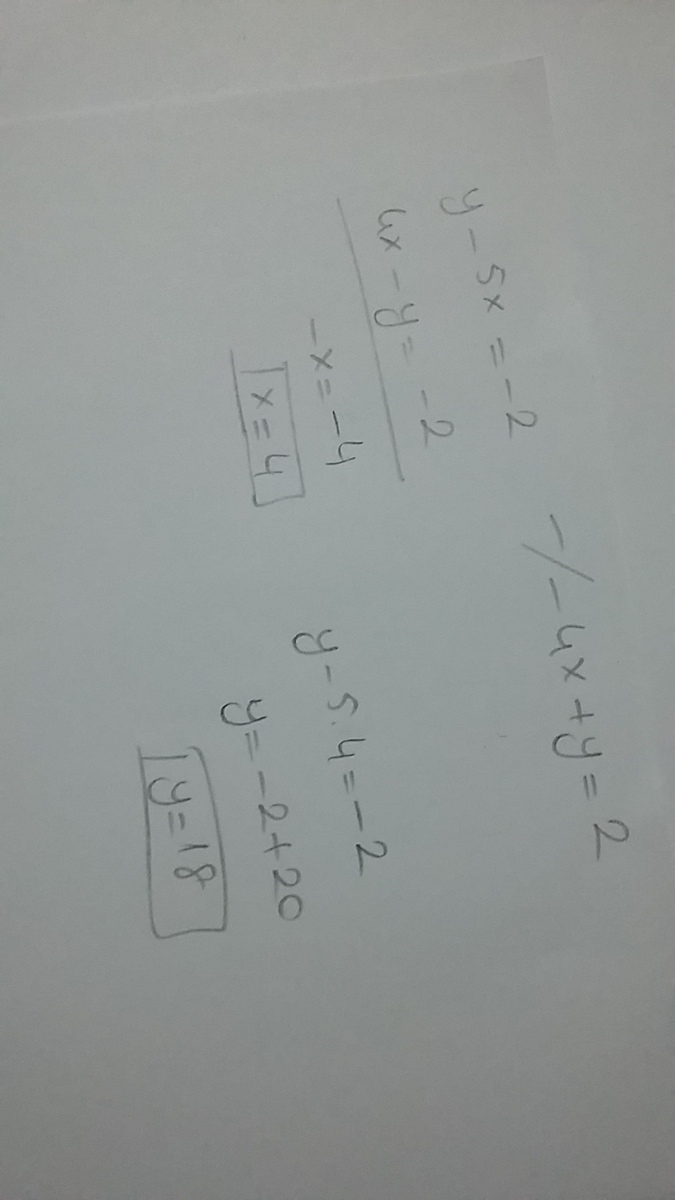 -/-4x+y=2
y-5x=-2
4x-y=-2
-x=-4
x=4
y-5.4=-2
y=-2+20
y=18